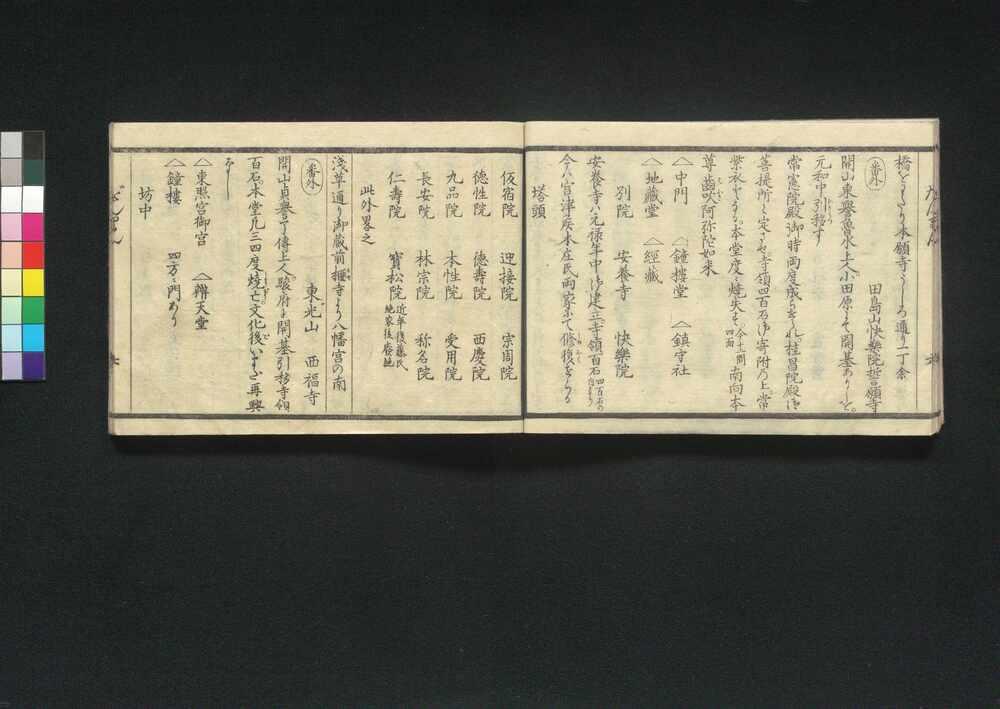 橋をわたり本願寺うしろ通り一丁余
番外 田島山快樂院誓願寺
開山東譽魯水上人小田原にて開基ありしを。
元和中引移す
常憲院殿御時両度成らせられ。桂昌院殿御
菩提所と定させ。寺領四百石御寄附の上。常
紫衣となる。本堂度々焼失す 今十間四面 南向本
尊歯吹阿弥陀如来
中門 鐘樓堂 鎮守社
地藏堂 經藏
別院 安養寺 快樂院
安養寺ハ元禄年中御建立寺領百石 四百石の内より
今ハ會津疾本庄氏両家にて修復をする
塔頭
仮宿院 迎接院 宗周院
徳性院 徳壽院 西慶院
九品院 本性院 受用院
長安院 林宗院 称名院
仁壽院 寶松院 近年後藤氏
此外畧之
浅草通り御蔵前 八幡宮の南
番外 東光山 西福寺
開山貞譽了傳上人駿府に開基引移寺領
百石。本堂凡三四度焼亡文化後いまだ再興
なし
東照宮御宮 辨天堂
鐘樓 四方ニ門あり
坊中